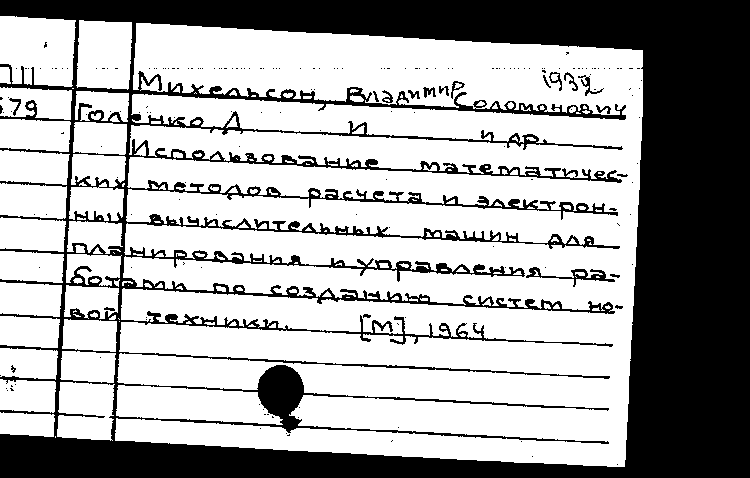 Михельсон, Владимир Соломонович 1932
579 Голенко, Д И и др.
Использование математичес-
ких методов расчета и электрон-
ных вычислительных машин для
планирования и управления ра-
ботами по созданию систем но-
вой техники. [М], 1964